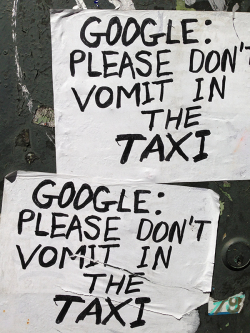 GOOGLE:
PLEASE DON'T
VOMIT IN
THE
TAXI
GOOGLE:
PLEASE DON'T
VOMIT IN
THE
TAXI